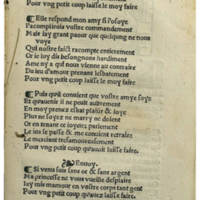 Pour vng petit coup laisse le moy faire
Elle respond mon amy si iosoye
Iacompliroys vostre commandement
Mais iay grant paour que quelqung ne nous
voye
Qui nostre faict racompte entierement
Or ie luy dis besongnons hardiment
Ame ny a qui nous vienne au contraire
Du ieu damours prenant lesbatement
Pour vng petit coup laisse le moy faire
Puis quil conuient que vostre amye soye
Et quauenir il ne peult autrement
En moy prendrez plaisir & joye
Plus ne soyez ne marry ne dolent
Or en tenant ce ioyeulx parlement
Le ieu se passe & comme retraire
Me dist tout bas & amoureusement
Pour vng petit coup quauez laisse faire.
Enuoy.
Si viens sans sens & sans argent
Ma princesse ne vous vueille desplaire
Iay mis mamour en vostre corps tant gent
Pour vng petit coup quauez laisse faire